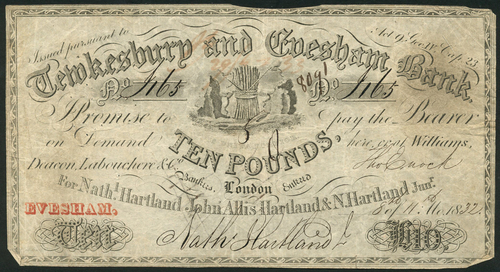 Issued pursuant to Act 9. Geo. IV. Cap. 23
Tewkesbury and Evesham Bank
No 1165 No 1165
I Promise to pay the Bearer
on Demand here, or at Williams,
TEN POUNDS,
Deacon, Labouchere & Co
Bankers, London
For Nathl Hartland, John Allis Hartland & N. Hartland Junr
EVESHAM,
1832
Ten
Nathl Hartland Jr